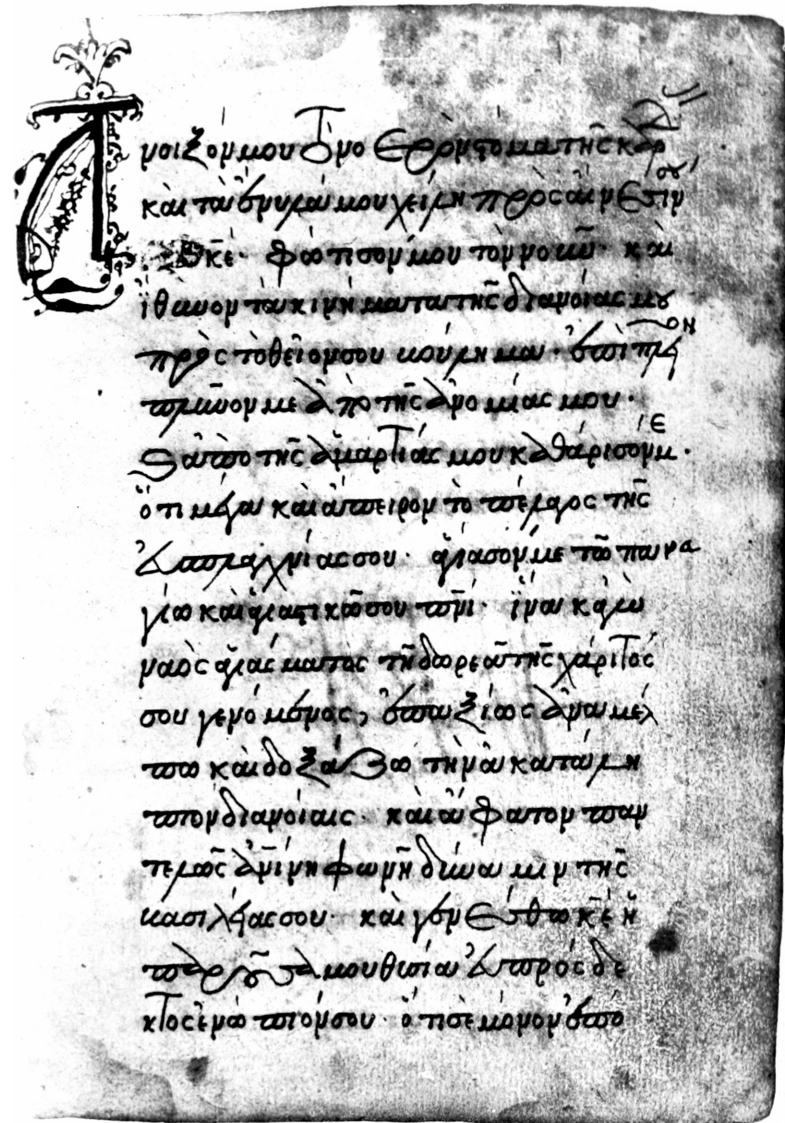 Ἄνοιξόν μου τὸ νοερὸν στόμα τῆς καρδ
καὶ τὰ ἔνυλά μου χείλη πρὸς αἴνεσίν σου
κε̄· φώτισόν μου τὸν νοῦν· καὶ
ἴθυνον τὰ κινήματα τῆς διανοίας μου
πρὸς τὸ θεῖον σου βούλημα· ἐπὶ πλεῖον
πλῦνόν με ἀπὸ τῆς ἀνομίας μου·
καὶ ἀπὸ τῆς ἁμαρτίας μου καθάρισόν με·
ὅτι μέγα καὶ ἄπειρον τὸ πέλαγος τῆς
εὐσπλαγχνίας σου· ἁγίασόν με τῶ πανα
γίω καὶ ἁγιαστικῶ σου πνῑ· ἵνα κἀγὼ
ναὸς ἁγιάσματος τῆ δωρεᾶ τῆς χάριτός
σου γενόμενος, ἐπαξίως ἀναμέλ
πω καὶ δοξάζω τὴν ἀκατάλη
πτον διανοίαις· καὶ ἄφατον παν
τελῶς ἀνῑνη φωνῆ δύναμιν τῆς
βασιλείας σου· καὶ γενέσθω κε̄ ἡ
παροῦσά μου θυσία εὐπρόσδε
κτος ἐνώπιόν σου· ὅτι σὲ μόνον ἐπὸ